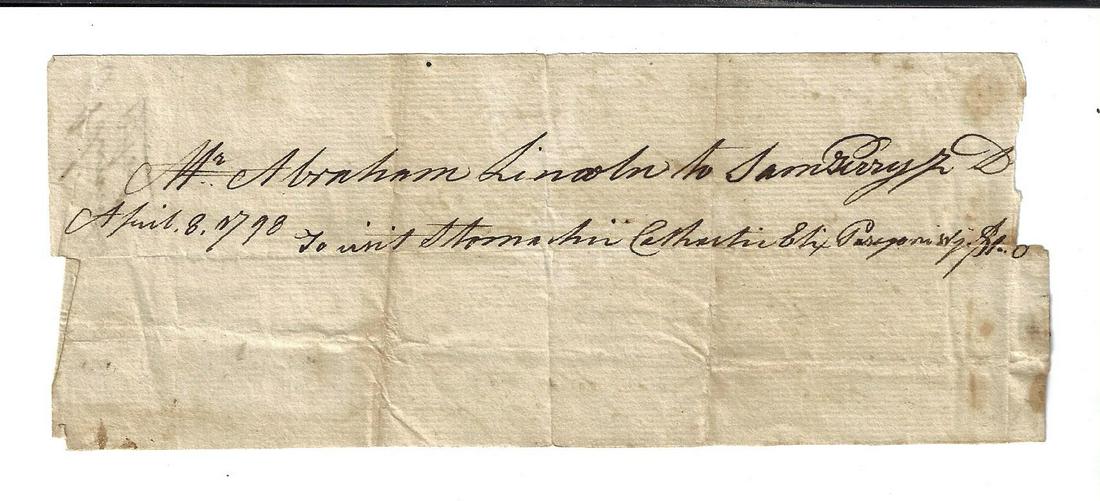 Mr. Abraham Lincoln to Sam Perry Jr D
April. 8. 1798 To visit Stomachii Cathartic Elix Paregoric